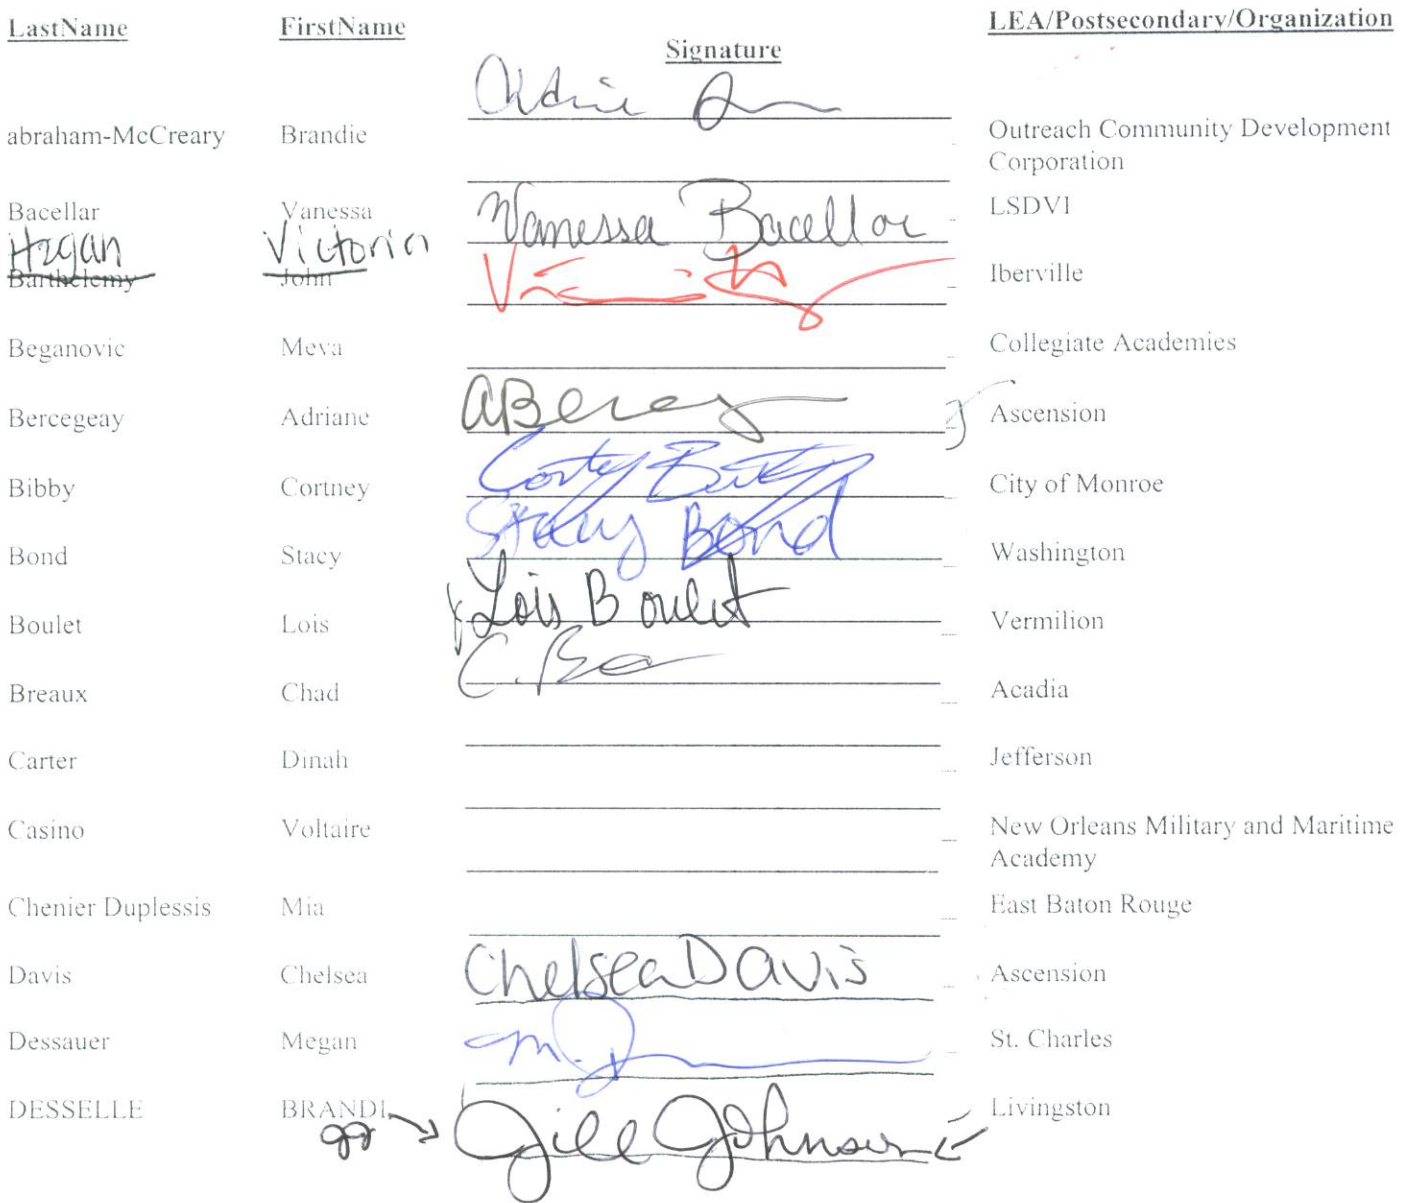 LastName FirstName Signature LEA/Postsecondary/Organization
abraham-McCreary Brandie Outreach Community Development
Corporation
Bacellar Vanessa Vanessa Bacellar LSDVI
Hagan Victoria
Barthelemy John Iberville
Beganovic Meva Collegiate Academies
Bercegeay Adriane Ascension
Bibby Cortney City of Monroe
Bond Stacy Stacy Bond Washington
Boulet Lois Lois Boulet Vermilion
Breaux Chad Acadia
Carter Dinah Jefferson
Casino Voltaire New Orleans Military and Maritime
Academy
Chenier Duplessis Mia East Baton Rouge
Davis Chelsea Chelsea Davis Ascension
Dessauer Megan St. Charles
DESSELLE BRANDI Jill Johnson Livingston